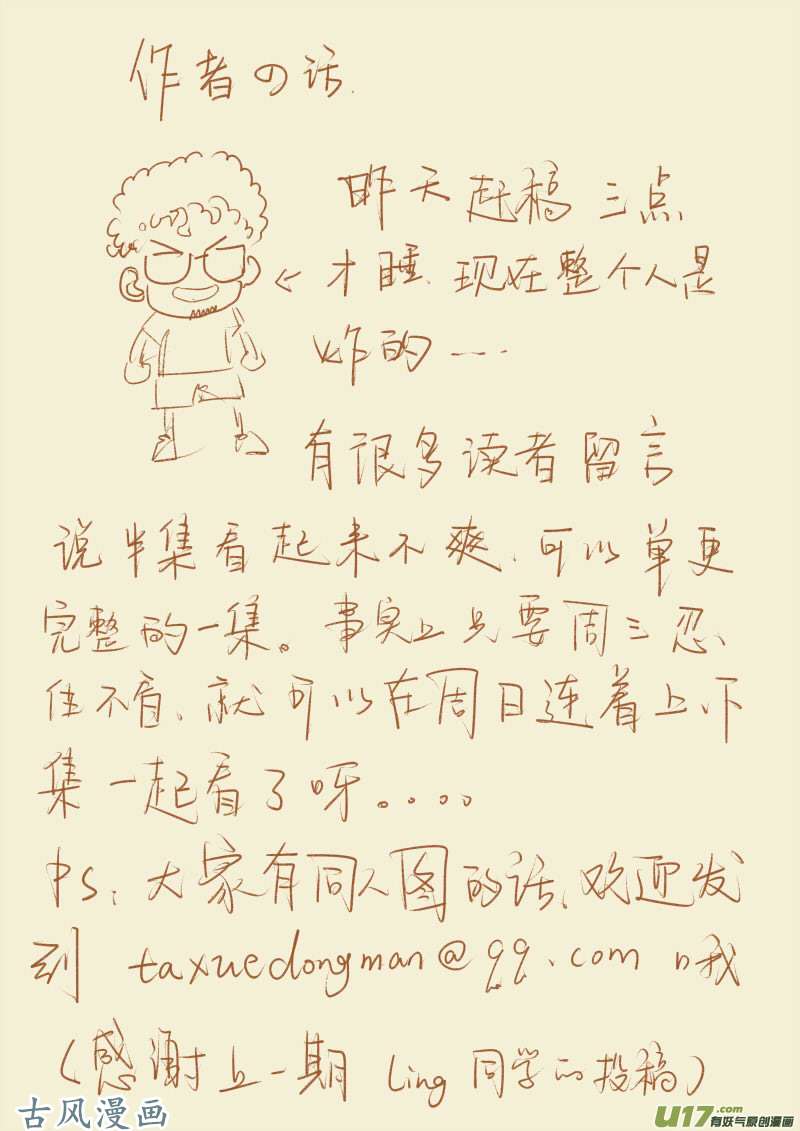 作者の话.
昨天赶稿三点
才睡.现在整个人是
炸的……
有很多读者留言
说半集看起来不爽、可以单更
完整的一集。事实上只要周三忍
住不看、就可以在周日连着上下
集一起看了呀。。。。
PS:大家有同人图的话、欢迎发
到 taxuedongman@qq.com 哦
(感谢上一期 Ling 同学的投稿)
古风漫画
U17.com
有妖气原创漫画